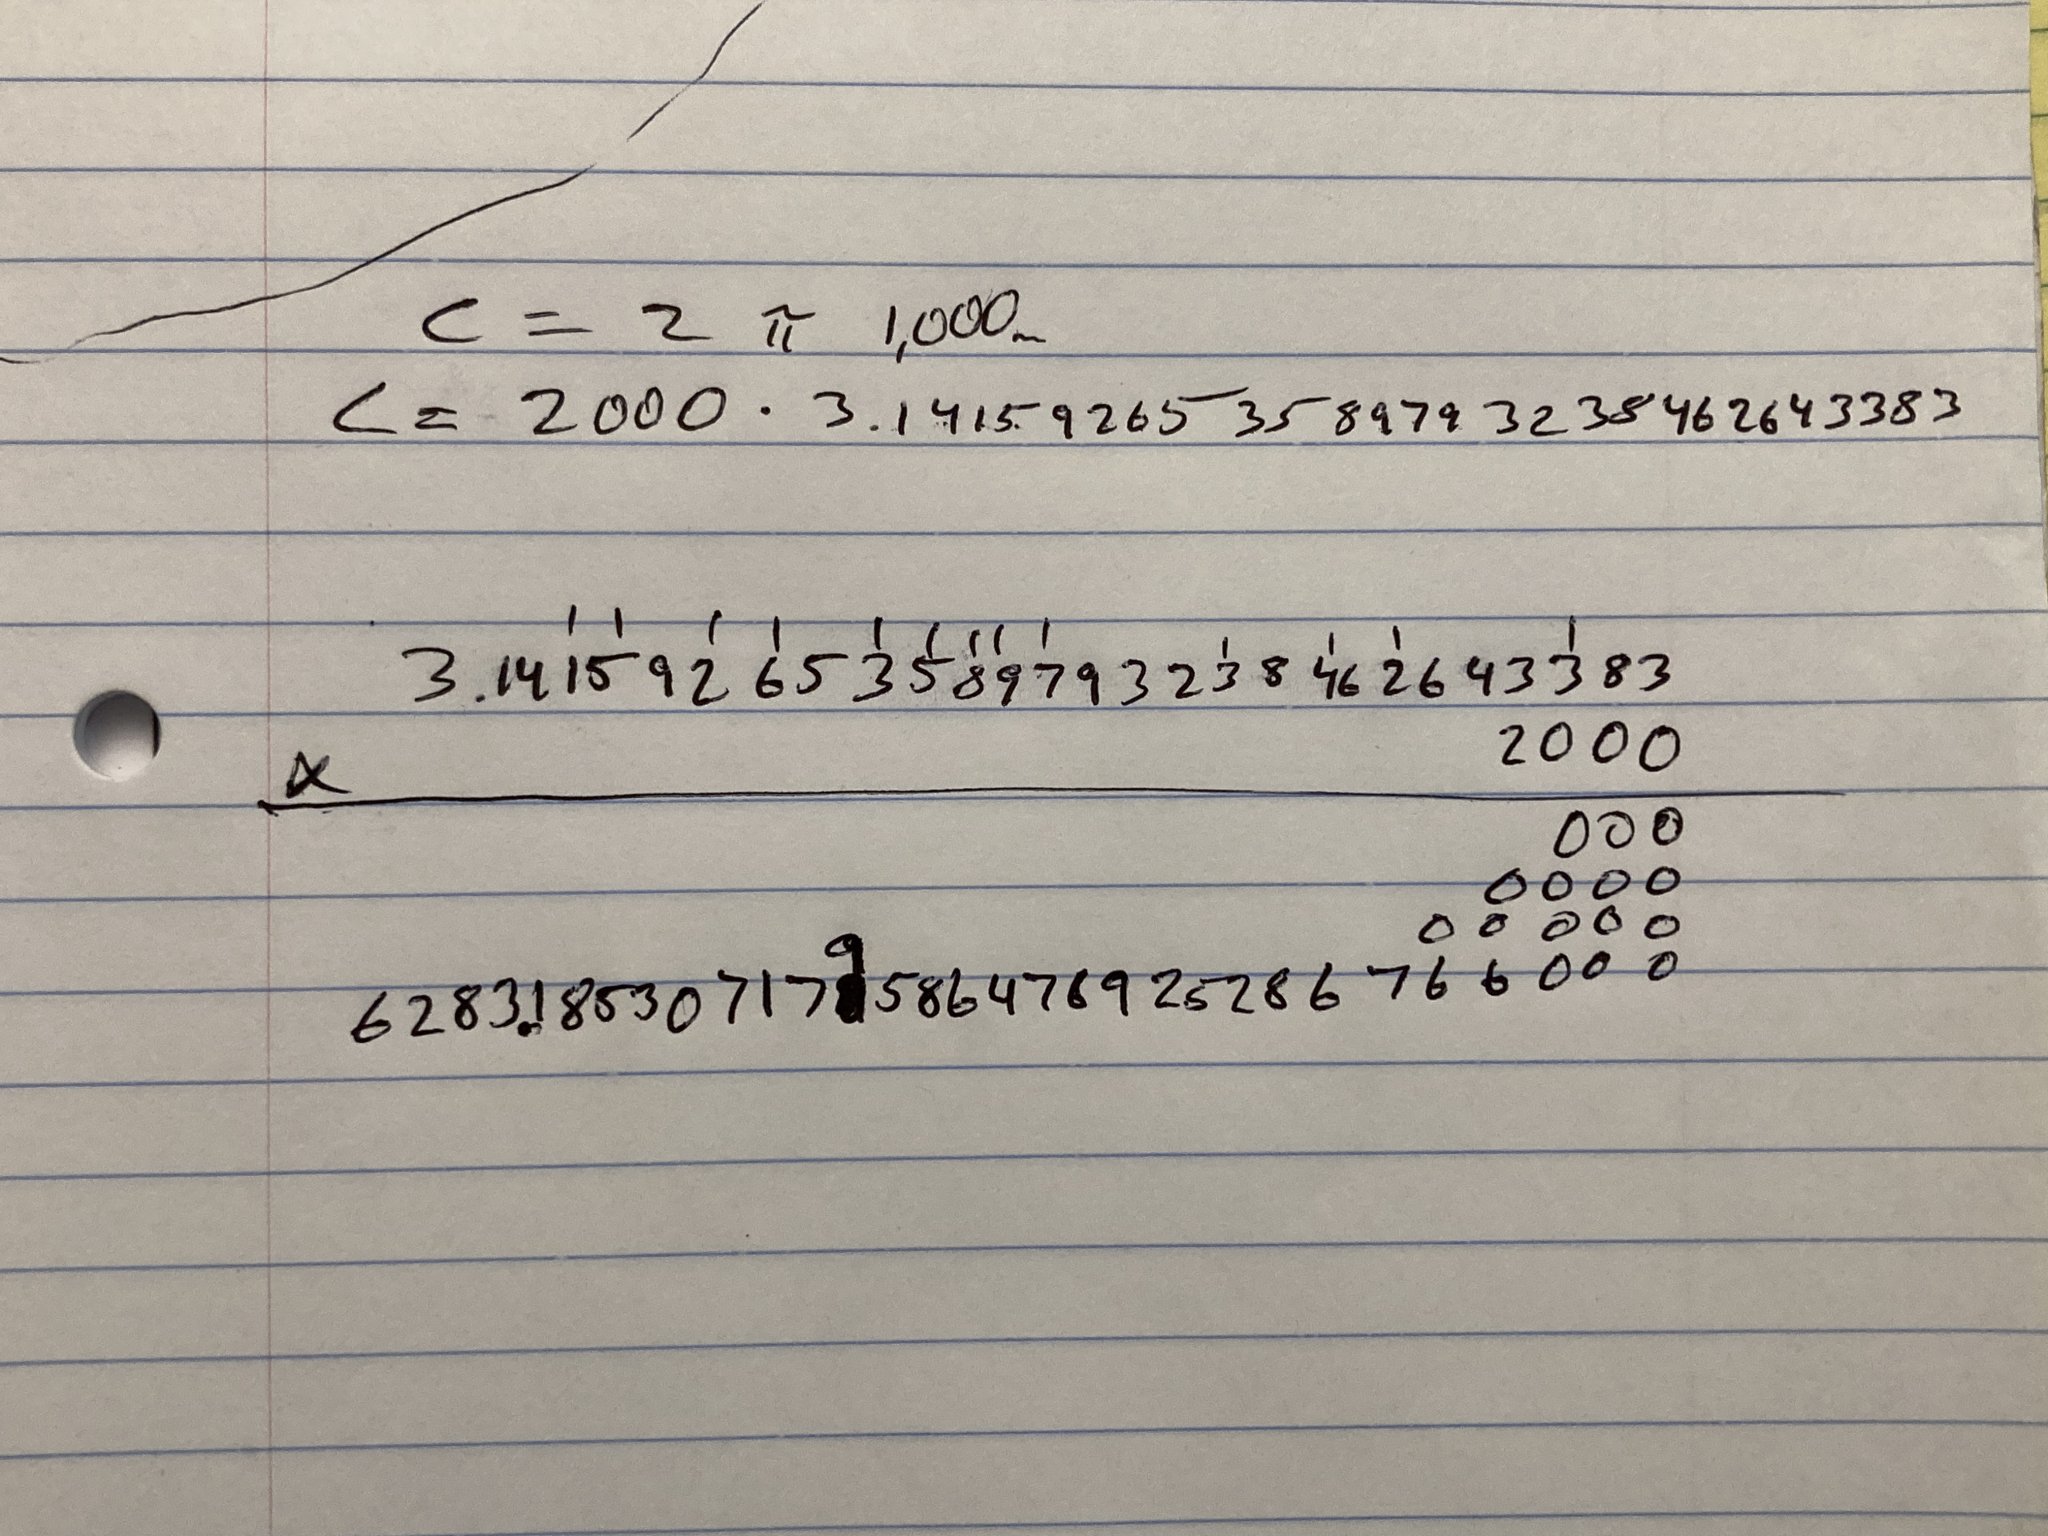 C = 2 π 1,000m
C = 2000 · 3.141592653589793238462643383
1 1 1 1 1 1 1 1 1 1 1 1 1
3.141592653589793238462643383
2000
x
000
0000
00000
9
6283.185307179586476925286766000